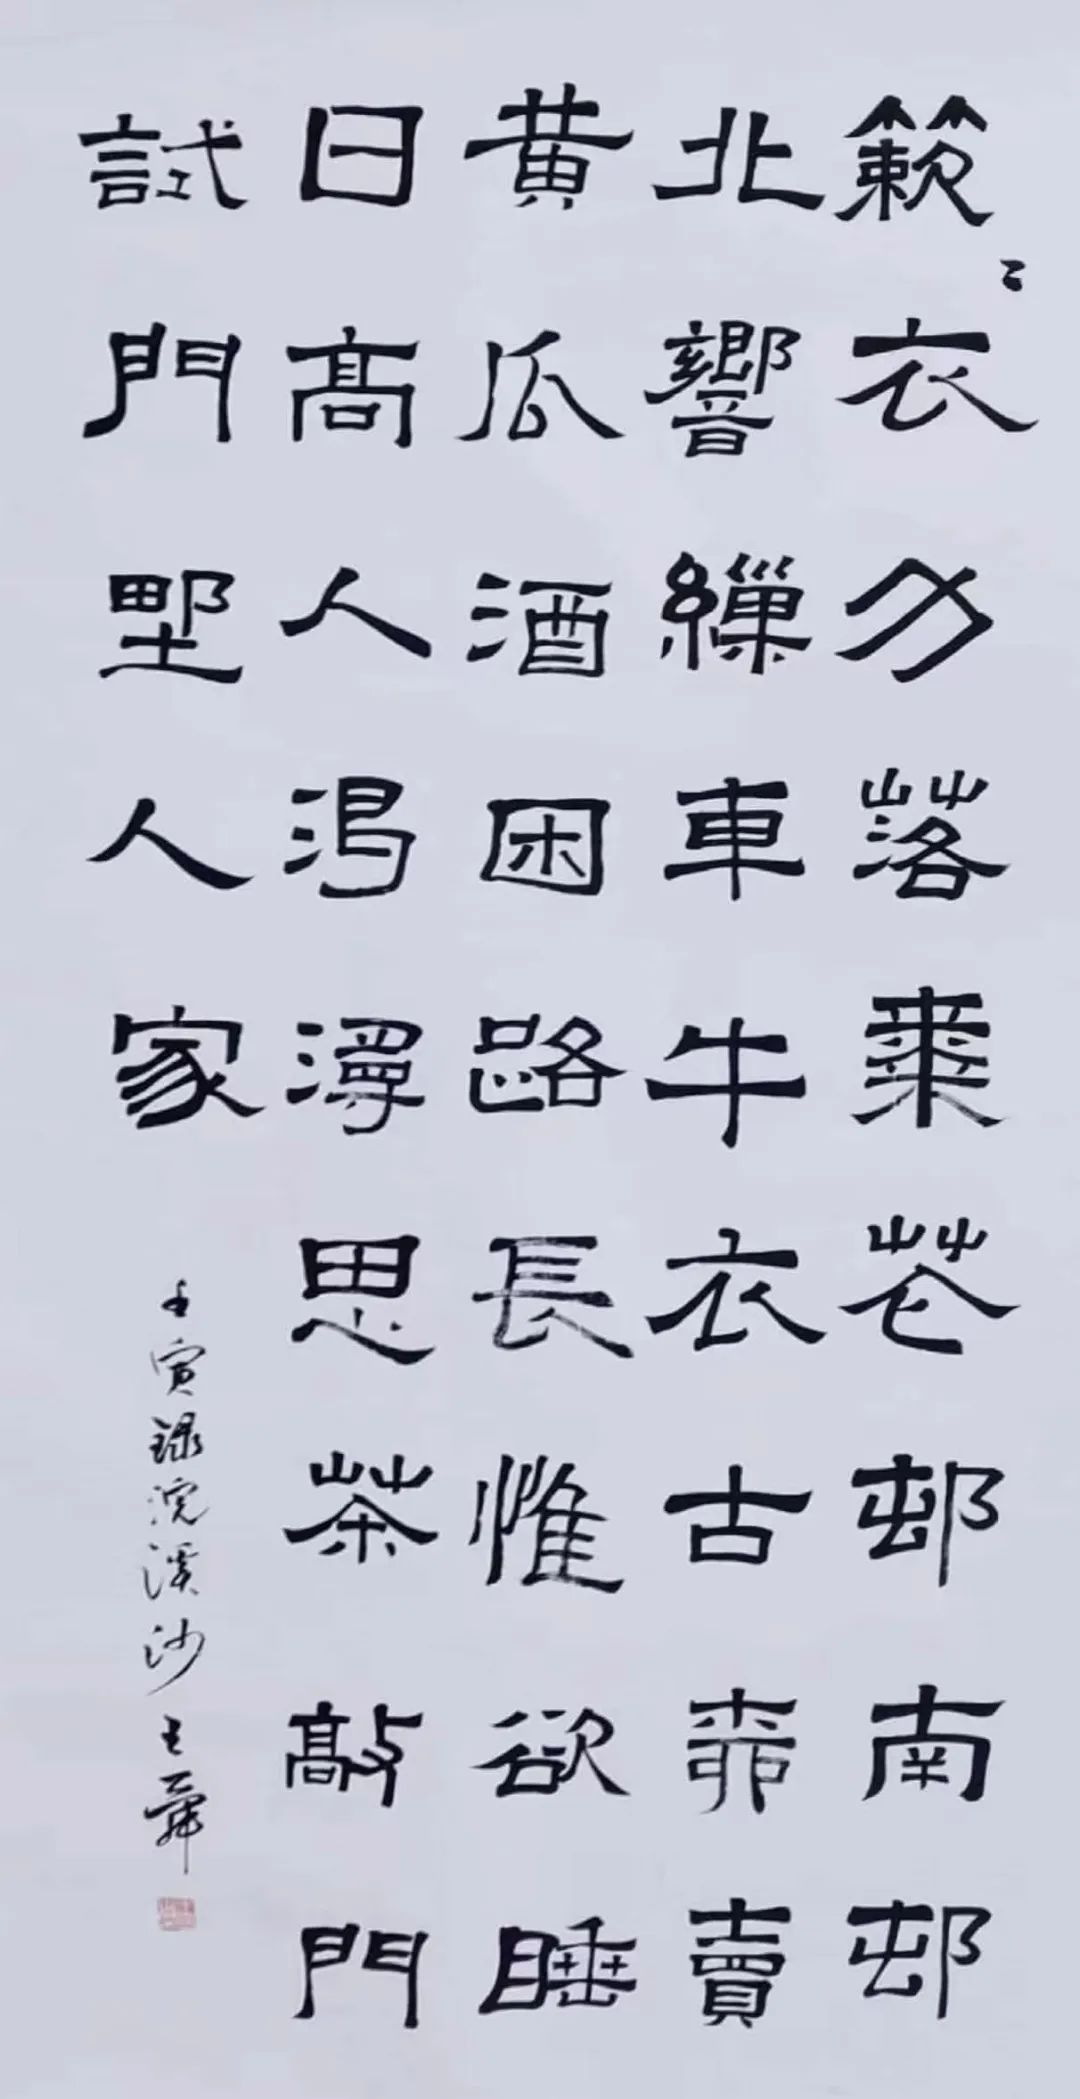 簌〻衣落棗花邨南邨
北響繅車牛衣古柳賣
黄瓜酒困路長惟欲睡
日高人渴漫思茶敲門
試門野人家
壬寅録浣溪沙王舜